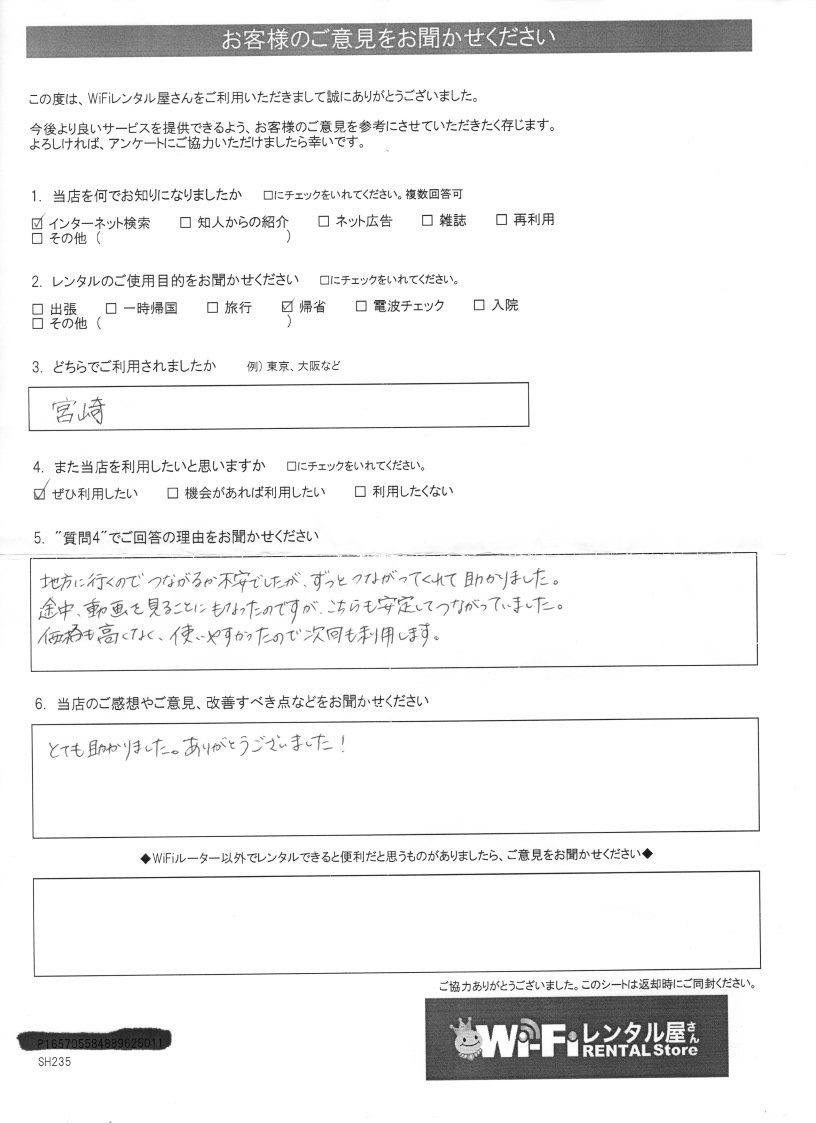 お客様のご意見をお聞かせください
この度は、WiFiレンタル屋さんをご利用いただきまして誠にありがとうございました。
今後より良いサービスを提供できるよう、お客様のご意見を参考にさせていただきたく存じます。
よろしければ、アンケートにご協力いただけましたら幸いです。
1. 当店を何でお知りになりましたか □にチェックをいれてください。複数回答可
☑ インターネット検索 □ 知人からの紹介 □ ネット広告 □ 雑誌 □ 再利用
□ その他 ( )
2. レンタルのご使用目的をお聞かせください □にチェックをいれてください。
□ 出張 □ 一時帰国 □ 旅行 ☑ 帰省 □ 電波チェック □ 入院
□ その他 ( )
3. どちらでご利用されましたか 例) 東京、大阪など
宮崎
4. また当店を利用したいと思いますか □にチェックをいれてください。
☑ ぜひ利用したい □ 機会があれば利用したい □ 利用したくない
5. "質問4"でご回答の理由をお聞かせください
地方に行くのでつながるか不安でしたが、ずっとつながってくれて助かりました。
途中、動画を見ることにもなったのですが、こちらも安定してつながっていました。
価格も高くなく、使いやすかったので次回も利用します。
6. 当店のご感想やご意見、改善すべき点などをお聞かせください
とても助かりました。ありがとうございました!
◆WiFiルーター以外でレンタルできると便利だと思うものがありましたら、ご意見をお聞かせください◆
ご協力ありがとうございました。このシートは返却時にご同封ください。
P165705584889625011
SH235
Wi-Fiレンタル屋さん
RENTAL Store